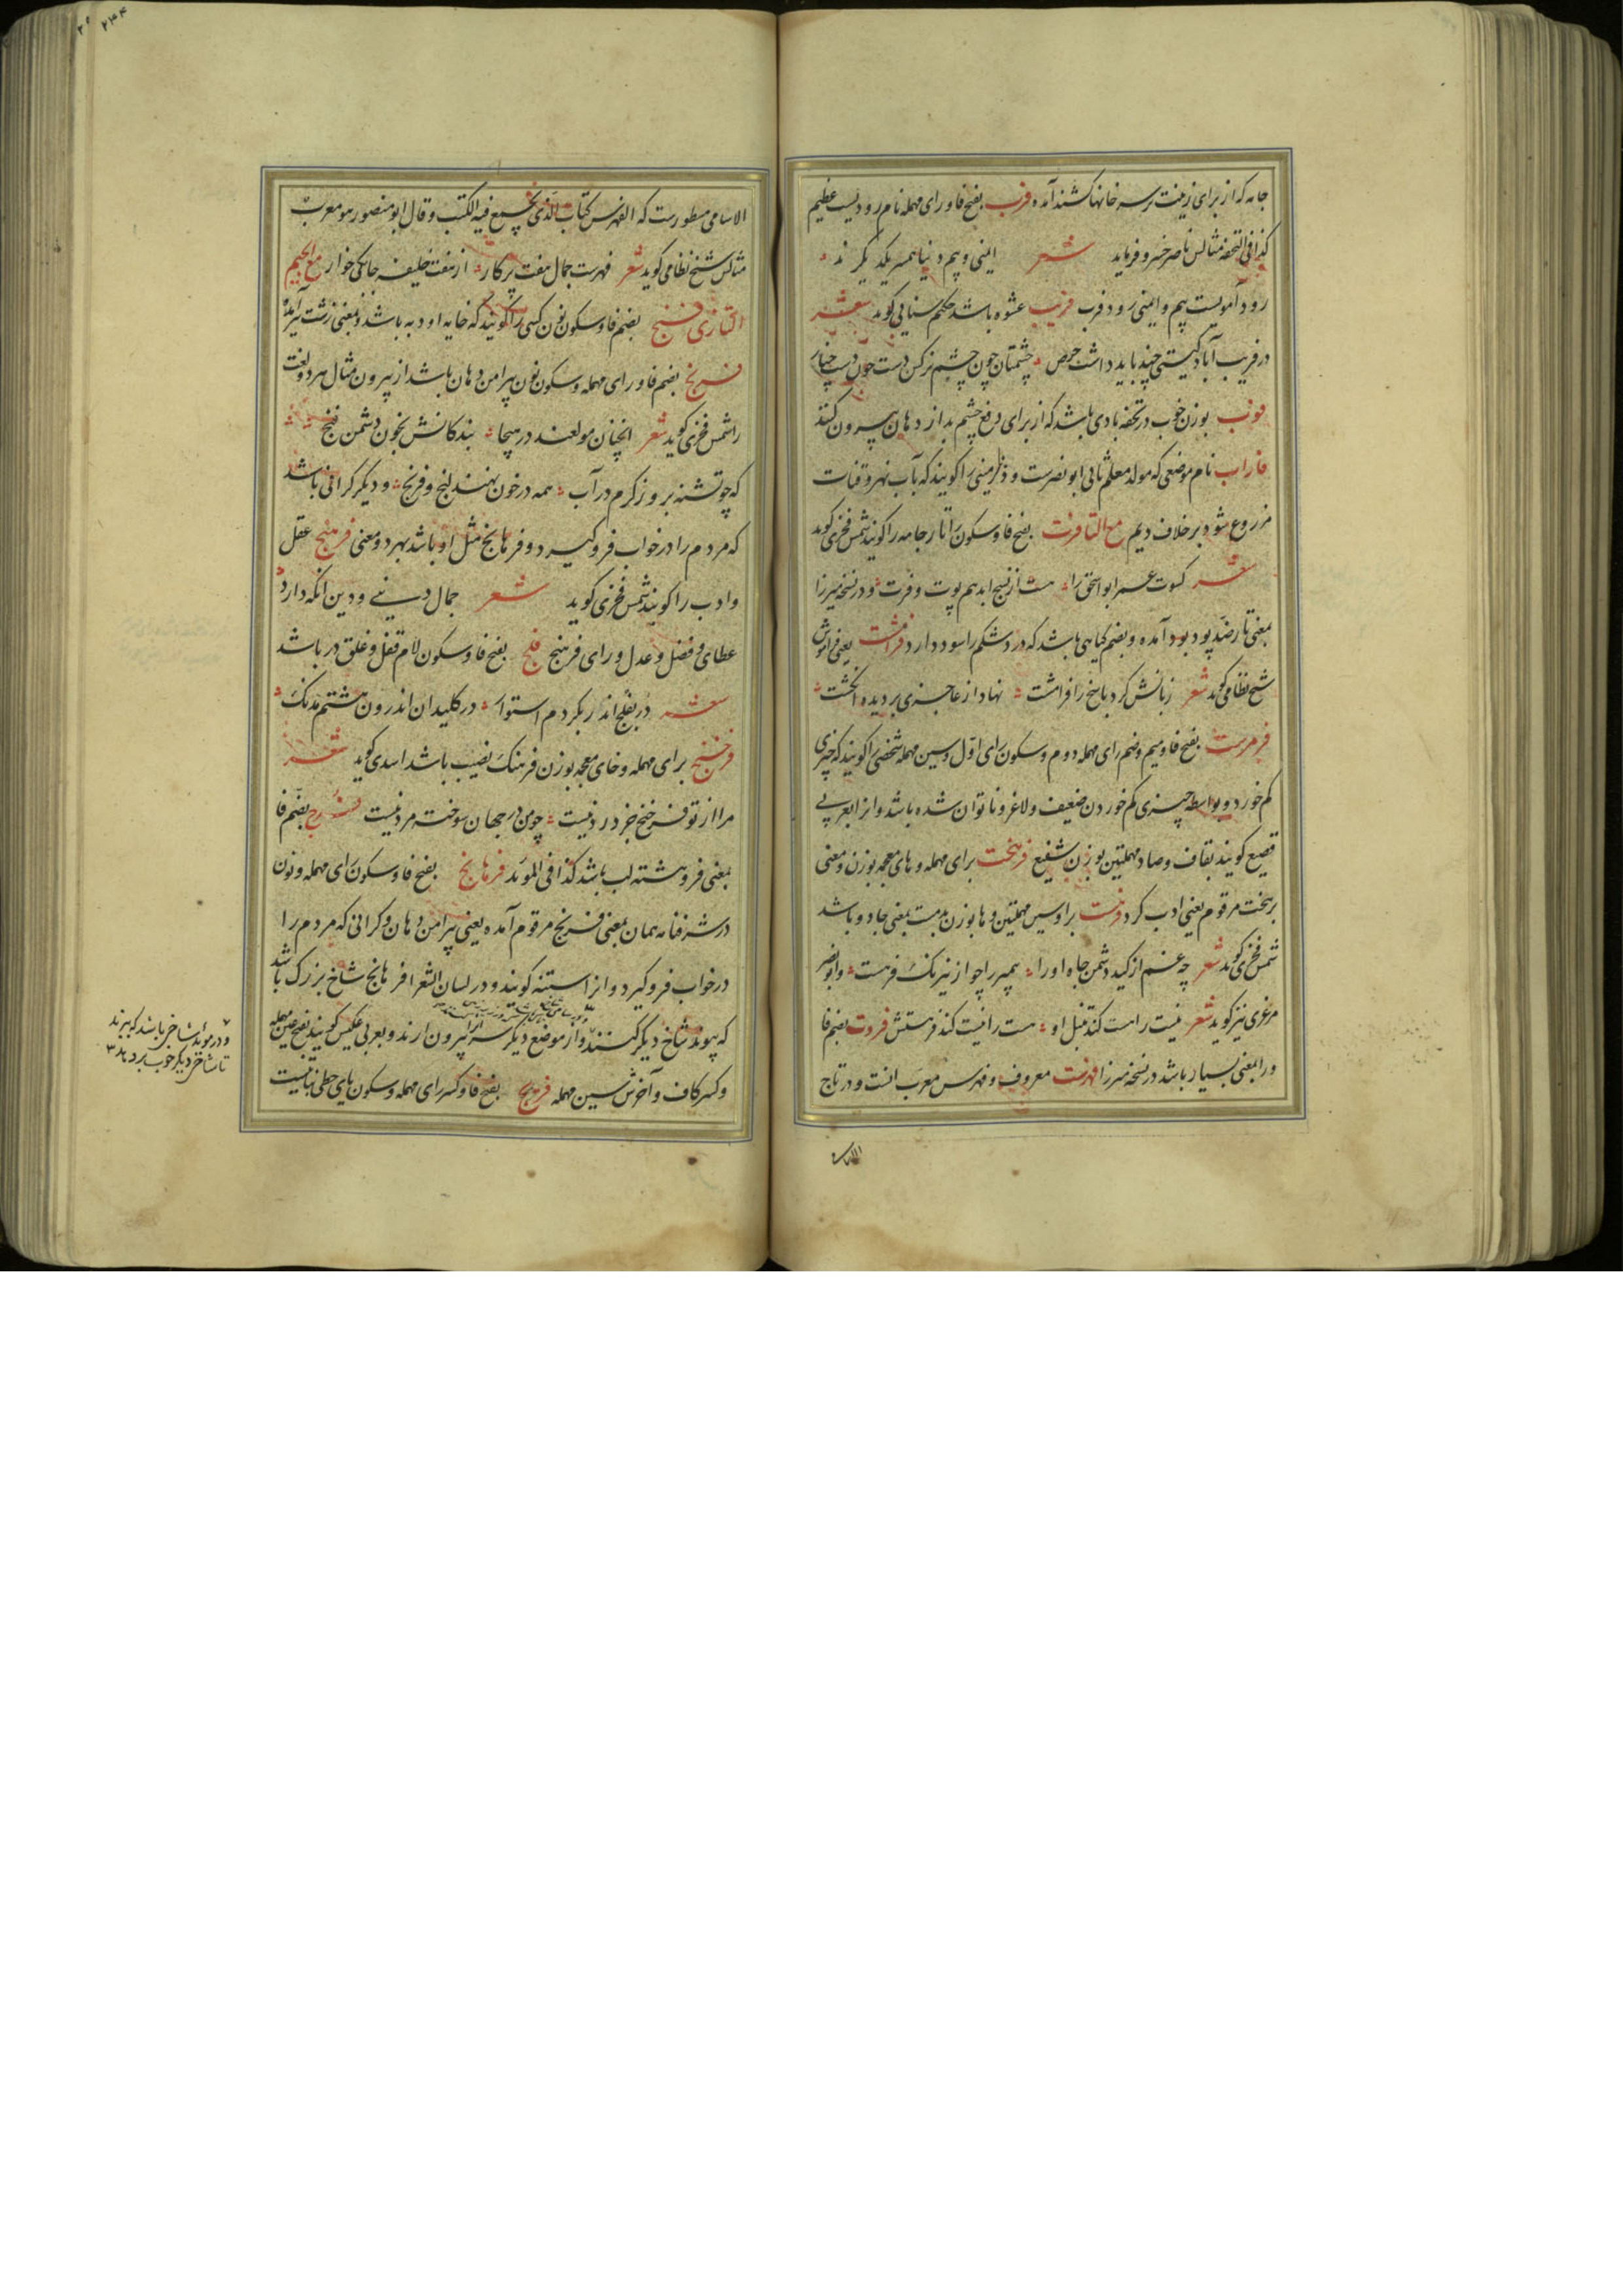 جامه که از برای زینت بر سر خانها کشند آمده فرب بفتح فا و رای مهمله نام رودیست عظیم
کذا فی التحفه مثالش ناصر خسرو فرماید شعر ایمنی و بیم دنیا همبر یکدیگرند
رود آمویست بیم و ایمنی رود فرب فریب عشوه باشد حکیم سنایی گوید شعر
در فریب آباد گیتی چند باید داشت حرص چشمتان چون چشم نرگس دست چون دست چنار
فوب بوزن خوب در تحفه بادی باشد که از برای دفع چشم بد از دهان بیرون کنند
فاراب نام موضعی که مولد معلم ثانی ابو نصرست و دیگر زمینی را گویند که بآب نهر و قنات
مزروع شود بر خلاف دیم مع التا فرت بفتح فا و سکون را تار جامه را گویند شمس فخری گوید
شعر کسوت عمر ابو اسحق را هست از نسج ابد هم پوت و فرت و در نسخه میرزا
بمعنی تار ضد پود بود آمده و بضم گیاهی باشد که درد شکم را سود دارد فرامشت یعنی فراموش
شیخ نظامی گوید شعر زبانش کرد پاسخ را فرامشت نهاد از عاجزی بر دیده انگشت
فرمرست بفتح فا و میم و ضم رای مهمله دوم و سکون رای اول و سین مهمله شخصی را گویند که چیزی
کم خورد و بواسطه چیزی کم خوردن ضعیف و لاغر و ناتوان شده باشد و انرا بعربی
قصیع گویند بقاف و صاد مهملتین بوزن شفیع فرهخت برای مهمله و های معجمه بوزن و معنی
برنخت مرقوم یعنی ادب کرد فرست برا و سین مهملتین و ها بوزن بدمست بمعنی جادو باشد
شمس فخری گوید شعر چه غم از کید دشمن جاه او را پیمبر را چو از نیرنگ فرهست و ابو نصر
مرغزی نیز گوید شعر نیست را هست کند تنبل او هست را نیست کند فرهستش فروت بضم فا
و را بمعنی بسیار باشد در نسخه میرزا فهرست معروف و فهرس معرب انست و در تاج
الاسامی
الاسامی مسطورست که الفهرس کتاب الذی یجمع فیه الکتب و قال ابو منصور هو معرب
مثالش شیخ نظامی گوید شعر فهرست جمال هفت پرگار از هفت خلیفه جامگی خوار مع الجیم
التازی فنج بضم فا و سکون نون کسی را گویند که خایه او دبه باشد و بمعنی زشت نیز آمده
فرنج بضم فا و رای مهمله و سکون نون پیرامن دهان باشد از بیرون مثال هر دو لغت
را شمس فخری گوید شعر انچنان مولعند در هیجا بندگانش بخون دشمن فنج
که چو تشنه بروز گرم در آب همه در خون نهند لنج و فرنج و دیگر گرانی باشد
که مردم را در خواب فرو گیرد و فرهانج مثل او باشد بهر دو معنی فرهنج عقل
و ادب را گویند شمس فخری گوید شعر جمال دنیی و دین انکه دارد
عطای و فضل و عدل و رای فرهنج فلج بفتح فا و سکون لام قفل و غلق در باشد
شعر در بفلج اندر بکردم استوار در کلیدان اندرون هشتم مدنگ
فرخنج برای مهمله و خای معجمه بوزن فرهنگ نصیب باشد اسدی گوید شعر
مرا از تو فرخنج جز درد نیست چو من در جهان سوخته مرد نیست بضم فا
بمعنی فروهشته لب باشد کذا فی الموید فرهانج بفتح فا و سکون رای مهمله و نون
در شرفنامه همان بمعنی فرنج مرقوم آمده یعنی پیرامن دهان و گرانی که مردم را
در خواب فرو گیرد و انرا ستنه گویند و در لسان الشعرا فرهانج شاخ بزرگ باشد
که پیوند شاخ دیگر کنند و از موضع دیگر سر انرا بیرون ارند و بعربی عکیس گویند بفتح عین مهمله
و کسر کاف و آخرش سین مهمله فریج بفتح فا و کسر رای مهمله و سکون یای حطی نباتیست
و در موید شاخی باشد که ببرند
تا شاخی دیگر خوب بردهد
۲۴۴